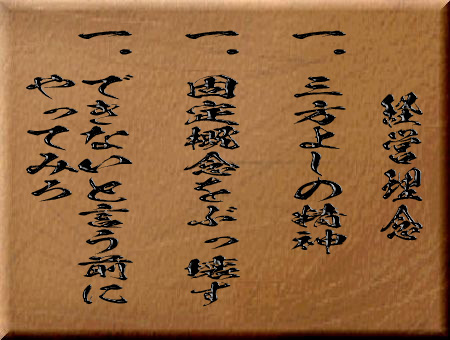 経営理念
一. 三方よしの精神
一. 固定概念をぶっ壊す
一. できないと言う前に
やってみろ